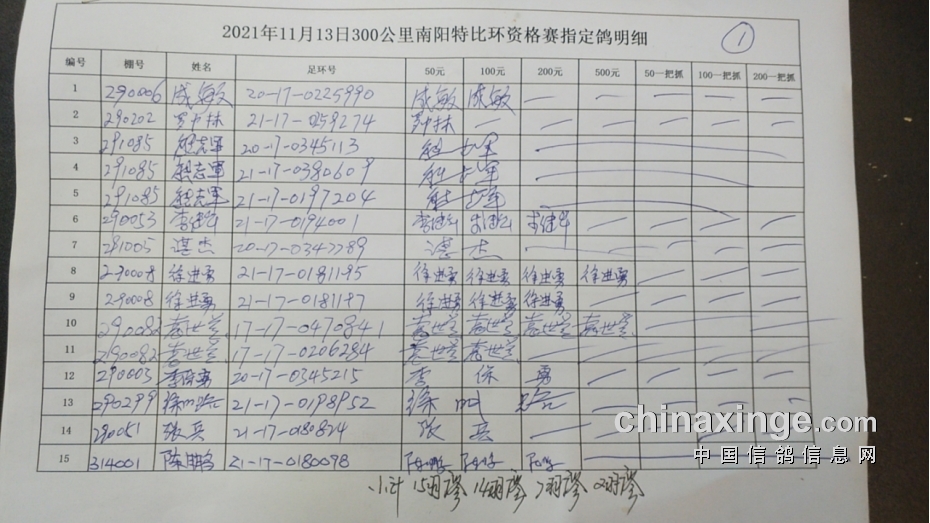 2021年11月13日300公里南阳特比环资格赛指定鸽明细 ①
编号 棚号 姓名 足环号 50元 100元 200元 500元 50一把抓 100一把抓 200一把抓
1 290006 成敏 20-17-0225990 成敏 成敏 — — — — —
2 290202 21-17-0159274 — — — — —
3 291085 20-17-0345113
4 291085 21-17-0380609
5 291085 21-17-0197204
6 290053 21-17-0194001 — — — —
7 281005 湛杰 20-17-0347789 湛 杰
8 290008 徐进勇 21-17-0181195 徐进勇 徐进勇 徐进勇 徐进勇 — — —
9 290008 徐进勇 21-17-0181197 徐进勇 徐进勇 徐进勇 — — — —
10 290082 袁世兰 17-17-0470841 袁世兰 袁世兰 袁世兰 袁世兰
11 290082 袁世兰 17-17-0206284 袁世兰 袁世兰
12 290003 李保勇 20-17-0345215 李 保 勇 — — — —
13 290299 21-17-0198952
14 290051 张兵 21-17-0180824 张 兵 —
15 314001 陈鹏 21-17-0180098 陈鹏 陈鹏 陈鹏
小计 15羽 14羽 7羽 2羽
chinaxinge.com
中国信鸽信息网